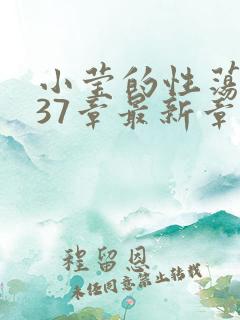 小莹的性荡
37章最新章
程留恩
未经同意禁止转载